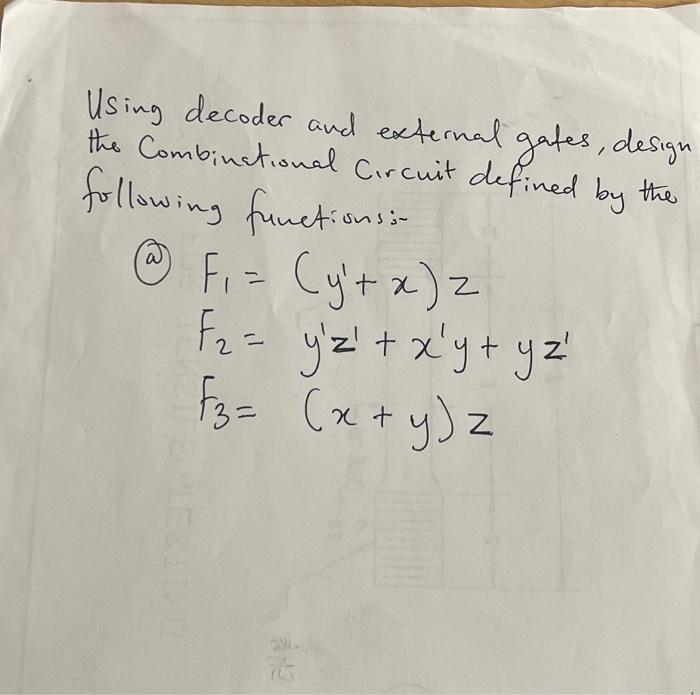 Using decoder and external gates, design
the Combinational Circuit defined by the
following functions:-
(a) F₁ = (y'+ x) z
F₂ = y'z' + x'y + yz'
F₃ = (x + y) z